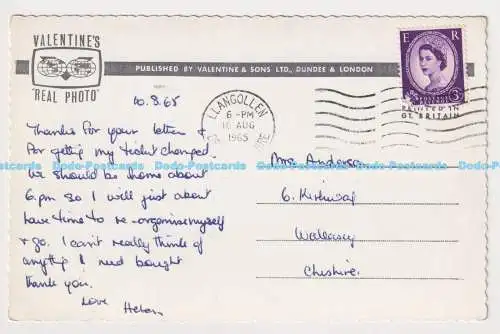 VALENTINE'S
"REAL PHOTO"
PUBLISHED BY VALENTINE & SONS LTD., DUNDEE & LONDON
E R
3D
PRINTED IN
GT. BRITAIN
LLANGOLLEN
6-PM
16 AUG
1965
10.8.65
Thanks for your letter &
for getting my ticket changed.
We should be home about
6pm so I will just about
have time to re-organise myself
& go. I can't really think of
anything I need bought
thank you.
Love
Helen
Mrs. Anderson
6. Kirkway
Wallasey
Cheshire.
Dodo-Postcards Dodo-Postcards Dodo-Postcards Dodo-Postcards